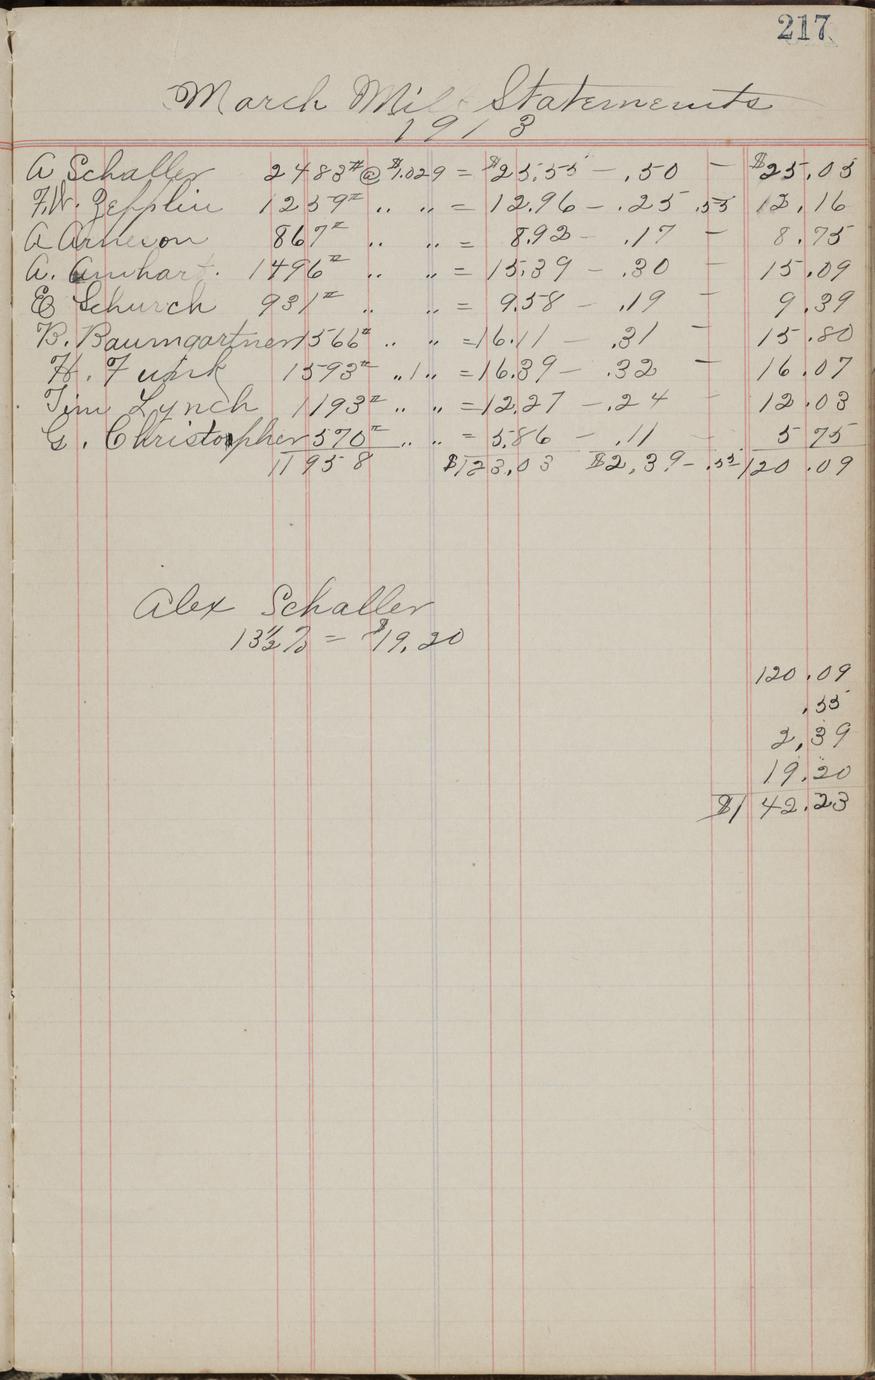 217
March Milk Statements
1913
A Schaller 2483# @ $1.029 = $25.55 - .50 - $25.05
F.W. Zepplin 1259# " " = 12.96 - .25 .55 12.16
A Arneson 867# " " = 8.92 - .17 - 8.75
A. Amhart. 1496# " " = 15.39 - .30 - 15.09
E Schurch 931# " " = 9.58 - .19 - 9.39
B. Baumgartner 1566# " " = 16.11 - .31 - 15.80
H. Funk 1593# " " = 16.39 - .32 - 16.07
Tim Lynch 1193# " " = 12.27 - .24 - 12.03
G. Christopher 570# " " = 5.86 - .11 - 5 75
11958 $123.03 $2,39 - .55 - 120.09
Alex Schaller
13½% = $19.20
120.09
.55
2,39
19.20
$142.23